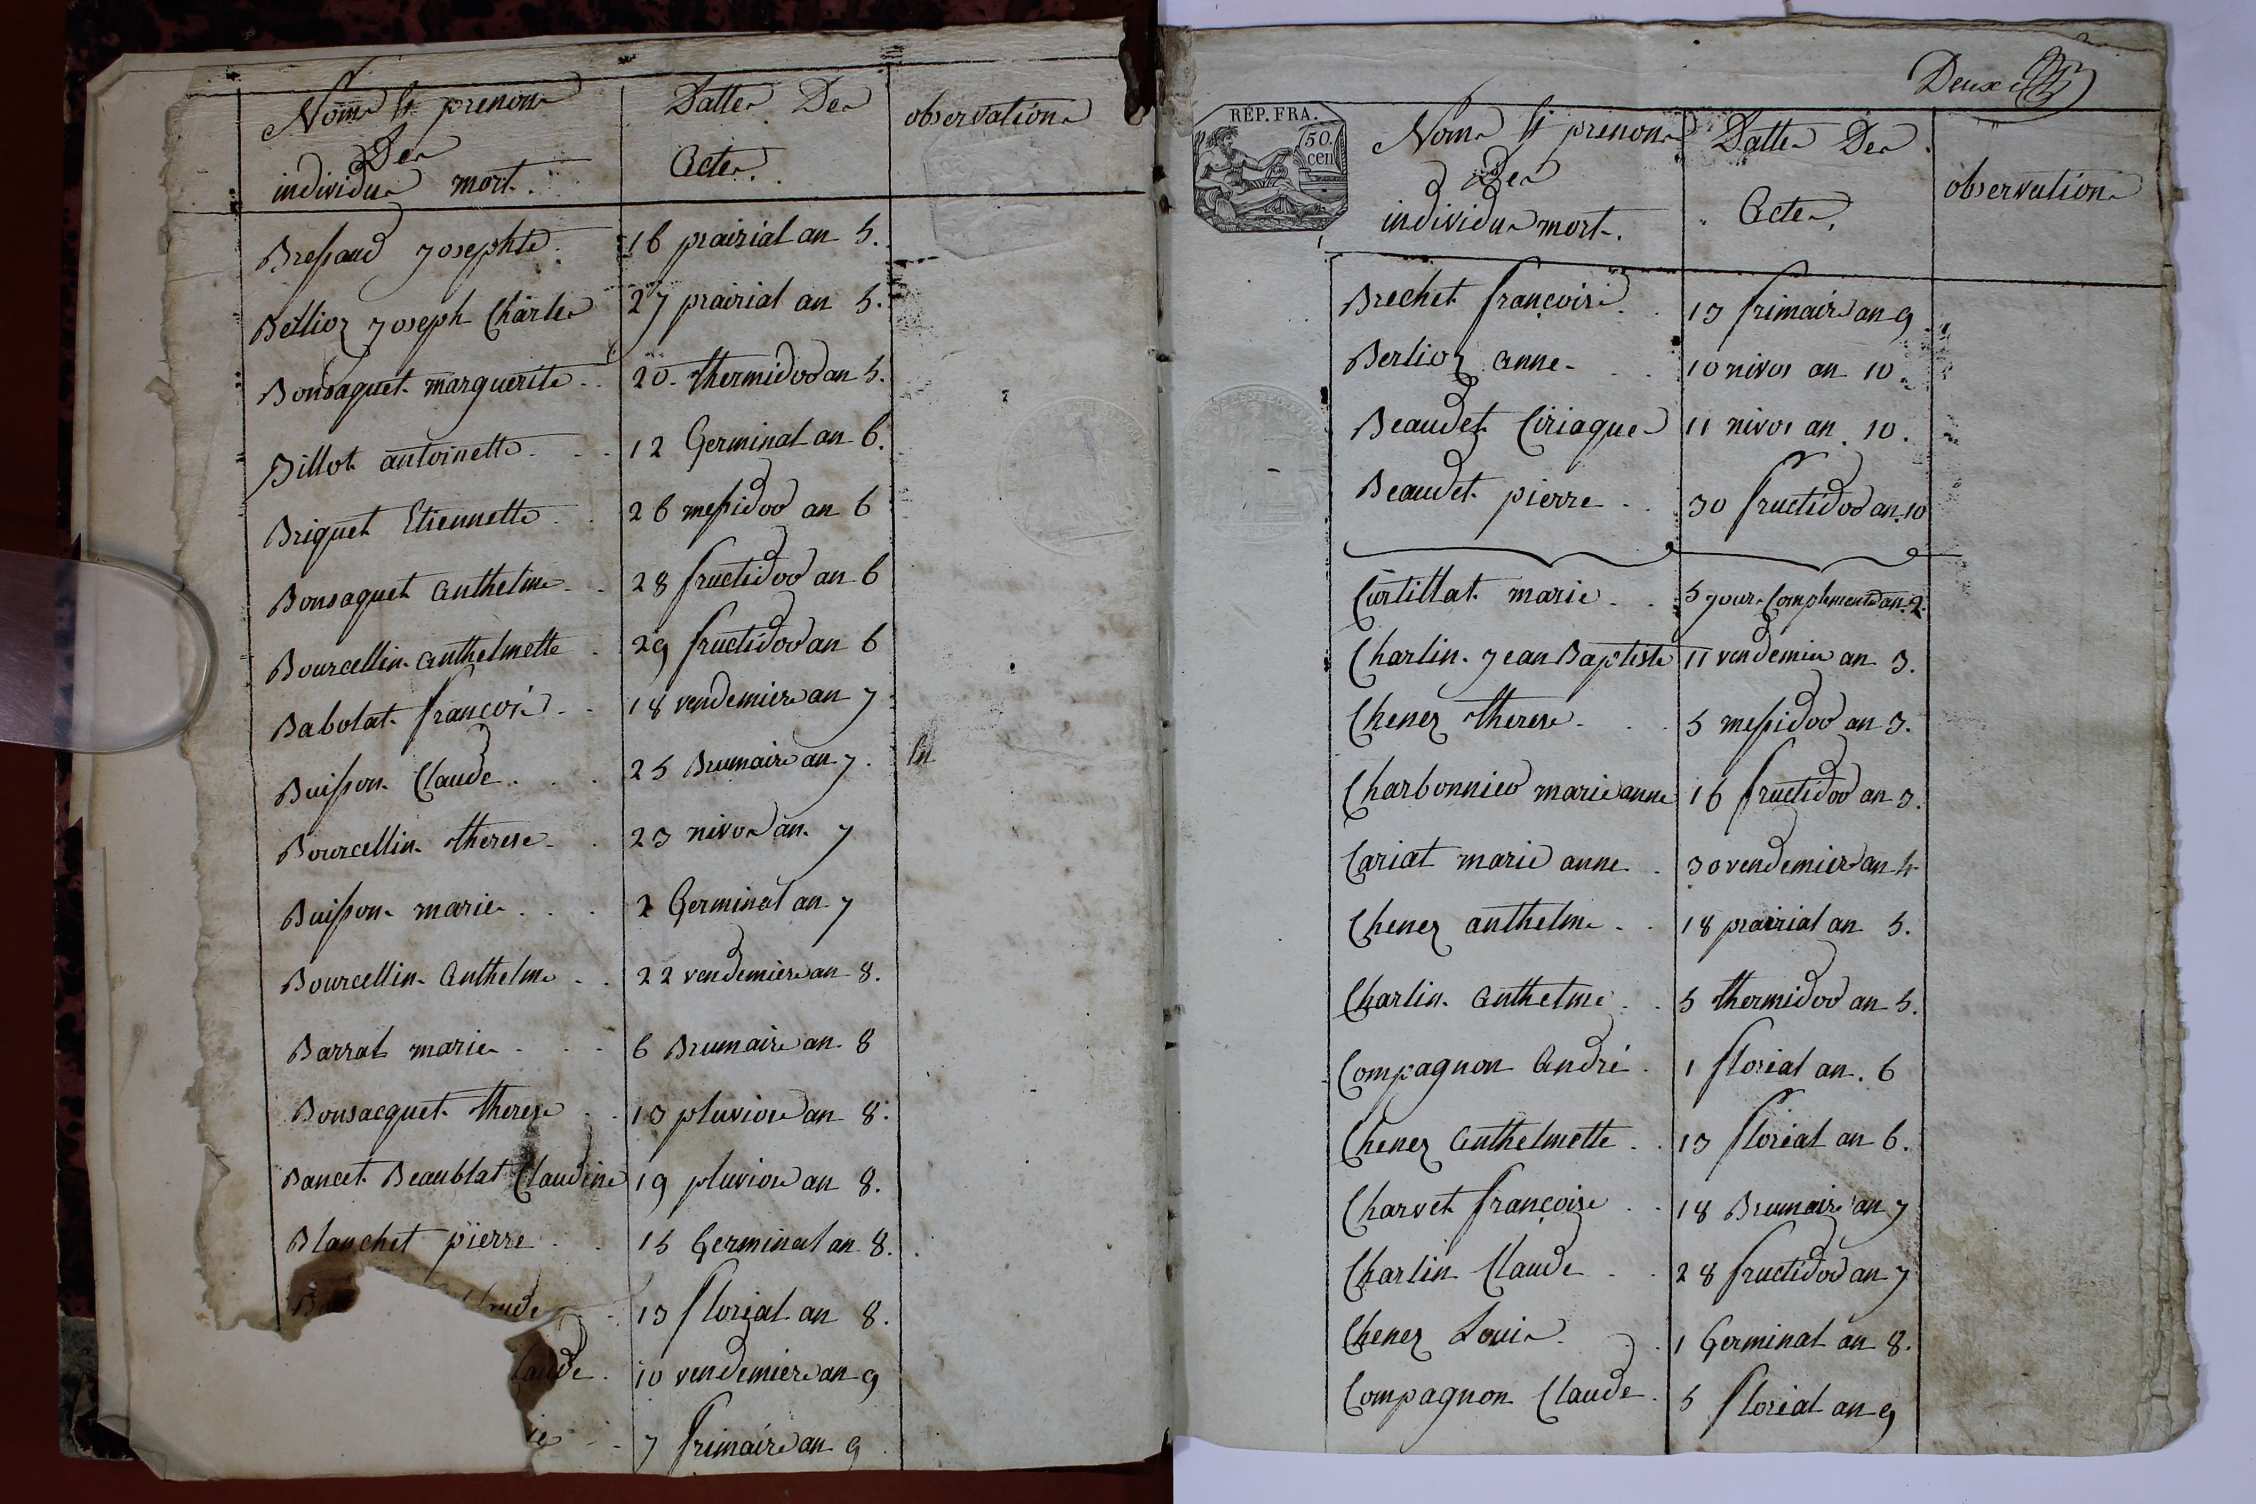 Noms et prenoms Des individus morts.
Dattes Des Actes.
observations
Bressand josephte. 16 prairial an 5.
Bellioz joseph Charles 27 prairial an 5.
Bonsaquet marguerite 20 thermidor an 5.
Billot antoinette 12 Germinal an 6.
Briquet Etiennette 26 messidor an 6
Bonsaquet Anthelme 28 fructidor an 6
Bourcellin anthelmette 29 fructidor an 6
Babolat françois 18 vendemiere an 7
Buisson Claude 25 Brumaire an 7.
Bourcellin therese 23 nivos an 7
Buisson marie 2 Germinal an 7
Bourcellin Anthelme 22 vendemiere an 8.
Barrat marie 6 Brumaire an 8
Bonsacquet therese 13 pluviose an 8.
Bancet Beaublat Claudine 19 pluviose an 8.
Blanchet pierre 15 Germinal an 8.
13 floréal an 8.
Claude. 10 vendemiere an 9
7 frimaire an 9
Deux
REP. FRA.
50. cen
Noms et prenoms Des individus morts.
Dattes Des Actes.
observations
Brechet françoise 13 frimaire an 9
Berlioz anne 10 nivos an 10.
Beaudet Ciriaque 11 nivos an 10.
Beaudet pierre 30 fructidor an 10
Curtillat marie 5 jours Complement an 2.
Charlin jean Baptiste 11 vendemiere an 3.
Chenez therese 5 messidor an 3.
Charbonnier marie anne 16 fructidor an 3.
Cariat marie anne 30 vendemiere an 4
Chenez anthelme 18 prairial an 5.
Charlin Anthelme 5 thermidor an 5.
Compagnon André 1 floréal an 6
Chenez Anthelmette 13 floréal an 6.
Charvet françoise 18 Brumaire an 7
Charlin Claude 28 fructidor an 7
Chenez Louis 1 Germinal an 8.
Compagnon Claude 5 floréal an 9